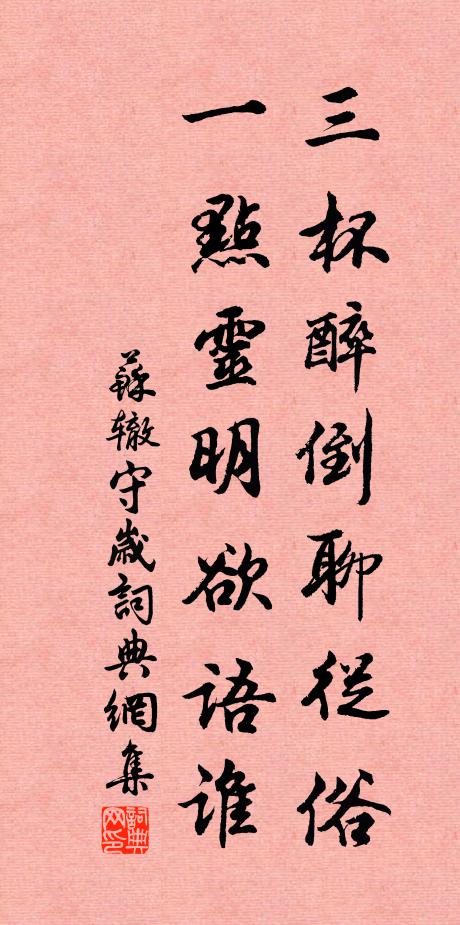 三杯醉倒聊從俗
一點靈明欲語誰
蘇辙守歲詞典網集
詞典网印